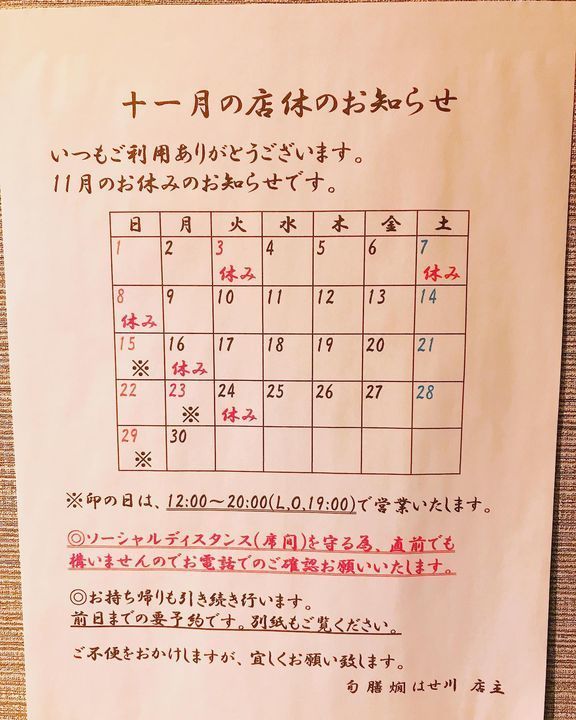 十一月の店休のお知らせ
いつもご利用ありがとうございます。
11月のお休みのお知らせです。
日 月 火 水 木 金 土
1 2 3 4 5 6 7
休み 休み
8 9 10 11 12 13 14
休み
15 16 17 18 19 20 21
※ 休み
22 23 24 25 26 27 28
※ 休み
29 30
※
※印の日は、12:00〜20:00(L,O,19:00)で営業いたします。
◎ソーシャルディスタンス(席間)を守る為、直前でも
構いませんのでお電話でのご確認お願いいたします。
◎お持ち帰りも引き続き行います。
前日までの要予約です。別紙もご覧ください。
ご不便をおかけしますが、宜しくお願い致します。
旬膳燗はせ川 店主